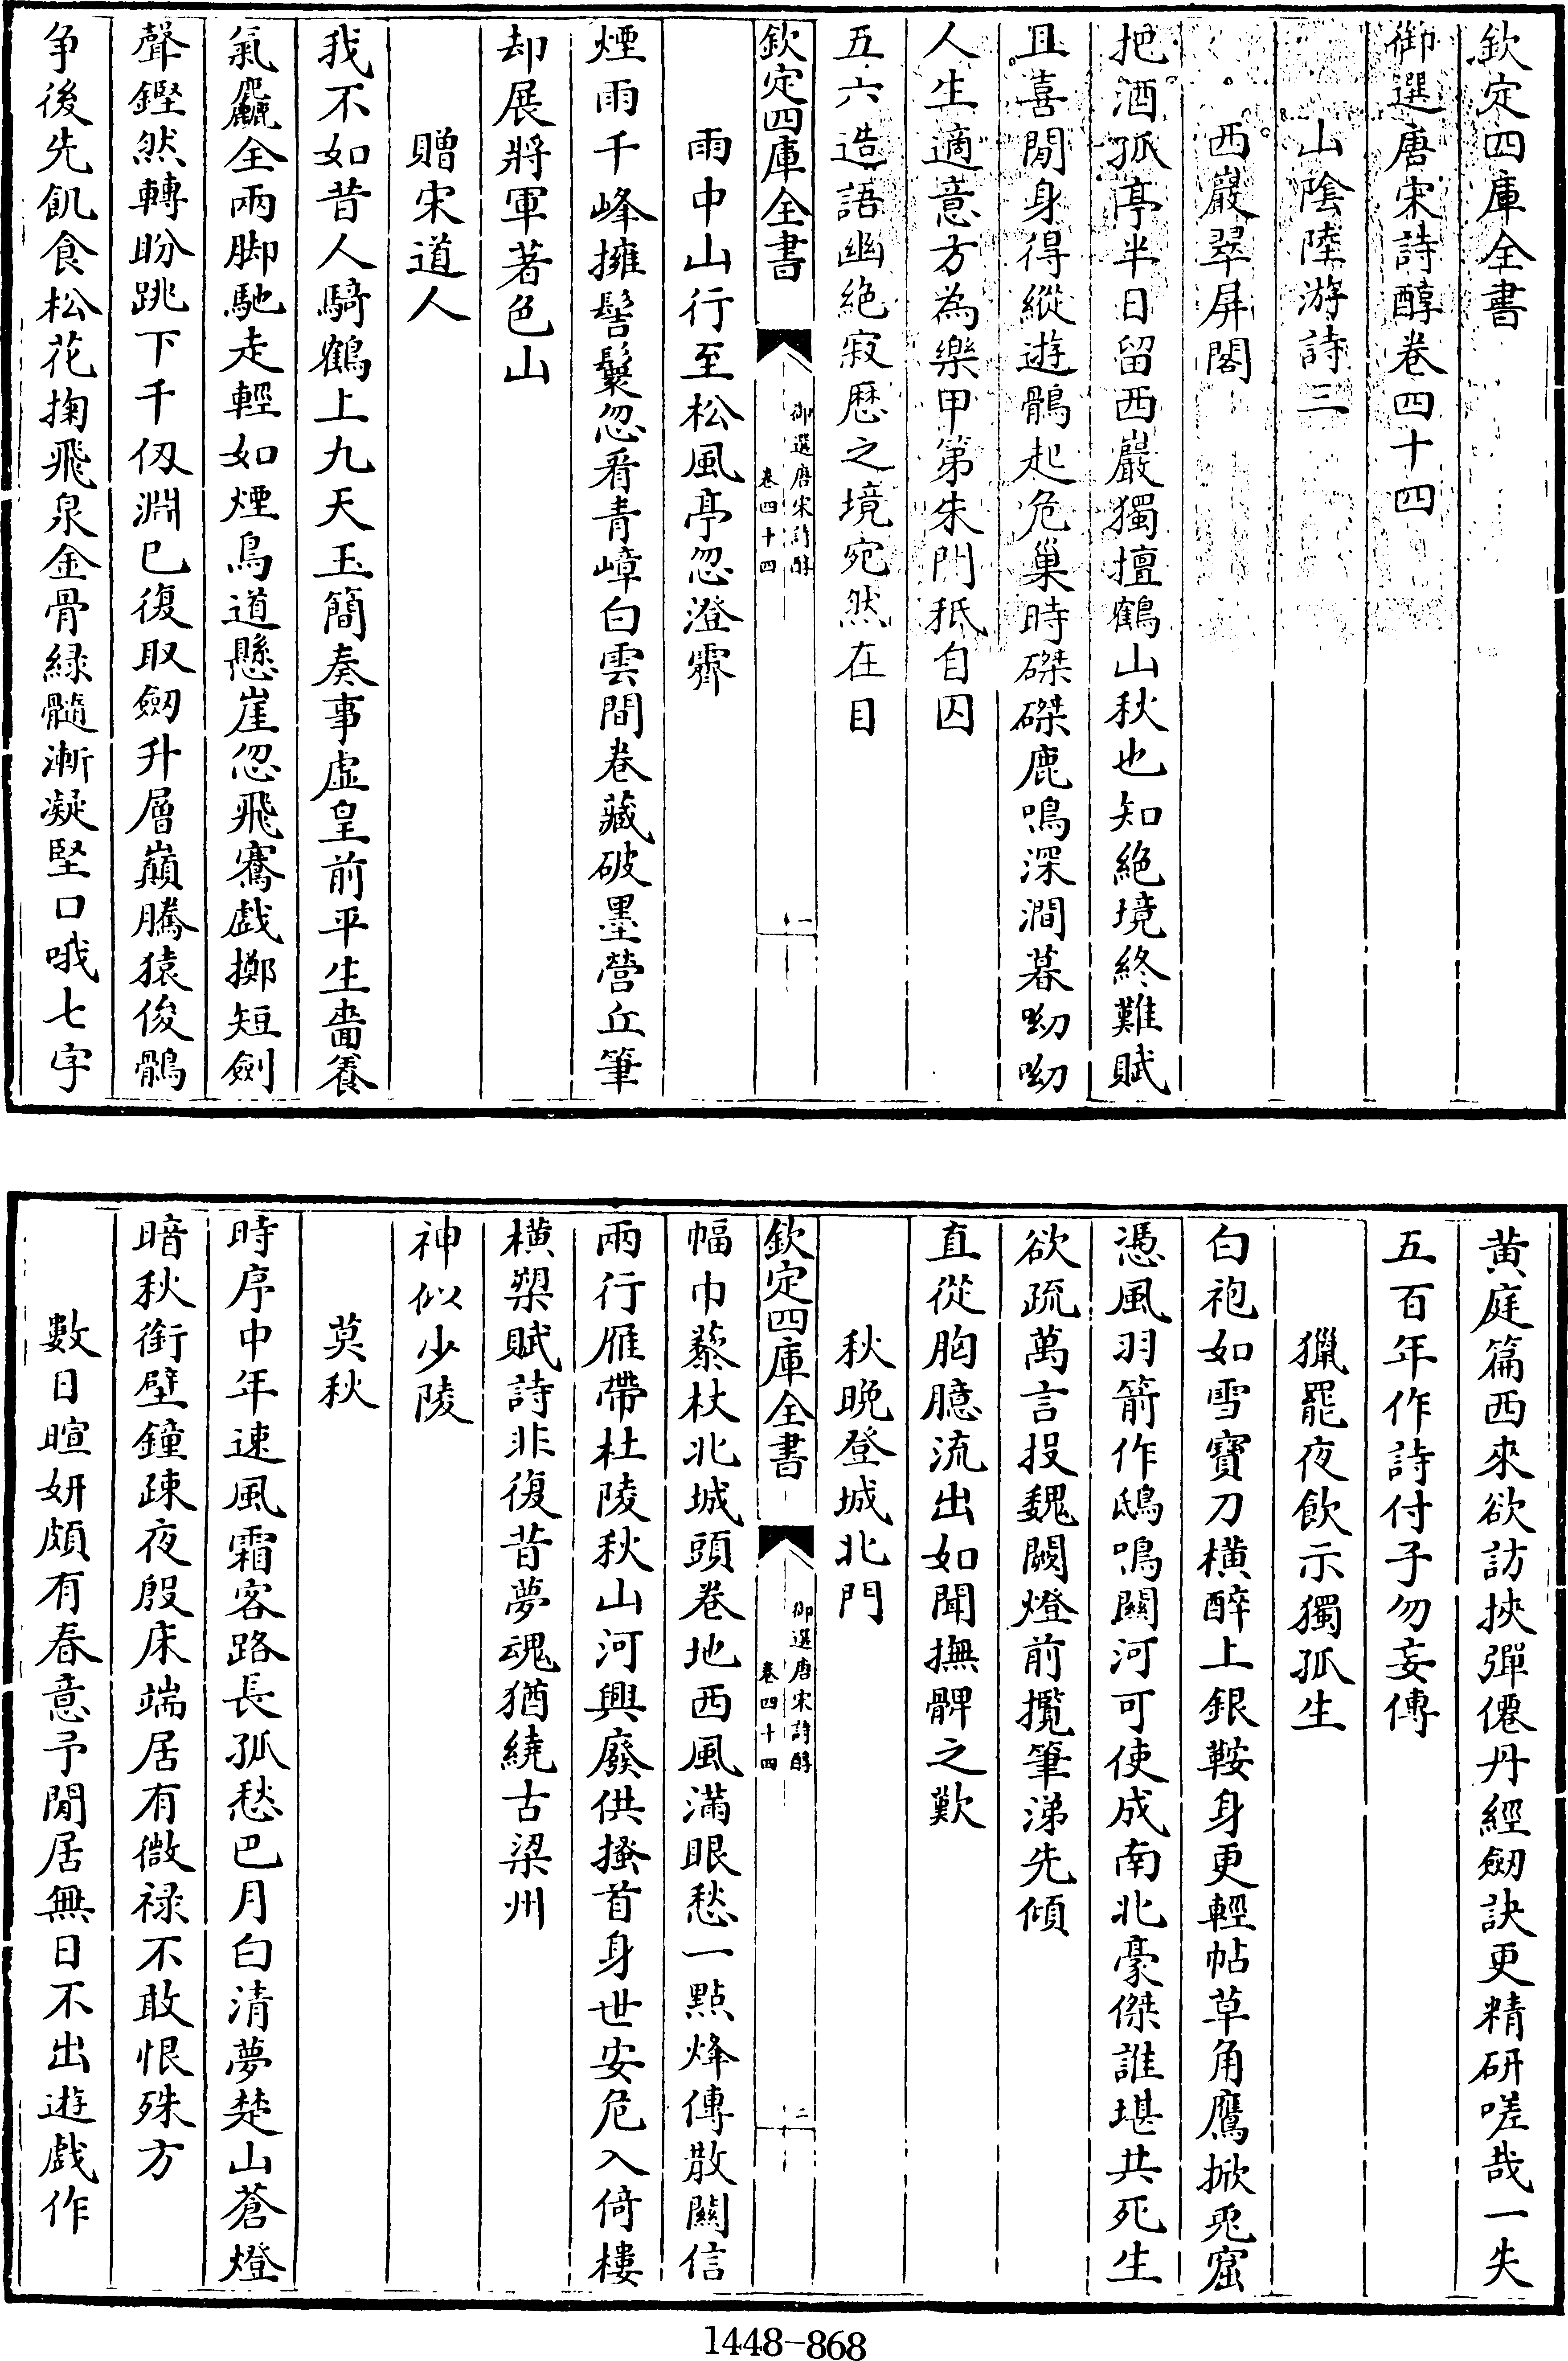 欽定四庫全書
御選唐宋詩醇卷四十四
山隂陸游詩三
西巖翠屏閣
把酒孤亭半日留西巖獨擅鶴山秋也知絶境終難賦
且喜閒身得縱遊鶻起危巢時磔磔鹿鳴深澗暮呦呦
人生適意方為樂甲第朱門秪自囚
五六造語幽絶寂厯之境宛然在目
欽定四庫全書
御選唐宋詩醇
卷四十四
一
雨中山行至松風亭忽澄霽
煙雨千峰擁髻鬟忽看青嶂白雲間卷藏破墨營丘筆
却展將軍著色山
贈宋道人
我不如昔人騎鶴上九天玉簡奏事虛皇前平生嗇養
氣麤全兩脚馳走輕如煙鳥道懸崖忽飛騫戲擲短劍
聲鏗然轉盼跳下千仭淵已復取劒升層巔騰猿俊鶻
争後先飢食松花掬飛泉金骨緑髓漸凝堅口哦七字
黄庭篇西來欲訪挾彈僊丹經劒訣更精研嗟哉一失
五百年作詩付子勿妄傳
獵罷夜飲示獨孤生
白袍如雪寶刀横醉上銀鞍身更輕帖草角鷹掀兎窟
憑風羽箭作鴟鳴關河可使成南北豪傑誰堪共死生
欲疏萬言投魏闕燈前攬筆涕先傾
直從胸臆流出如聞撫髀之歎
秋晩登城北門
欽定四庫全書
御選唐宋詩醇
卷四十四
二
幅巾藜杖北城頭卷地西風滿眼愁一點烽傳散關信
兩行雁帶杜陵秋山河興廢供搔首身世安危入倚樓
横槊賦詩非復昔夢魂猶繞古梁州
神似少陵
莫秋
時序中年速風霜客路長孤愁巴月白清夢楚山蒼燈
暗秋銜壁鐘疎夜殷床端居有微禄不敢恨殊方
數日暄妍頗有春意予閒居無日不出遊戯作
1448-868